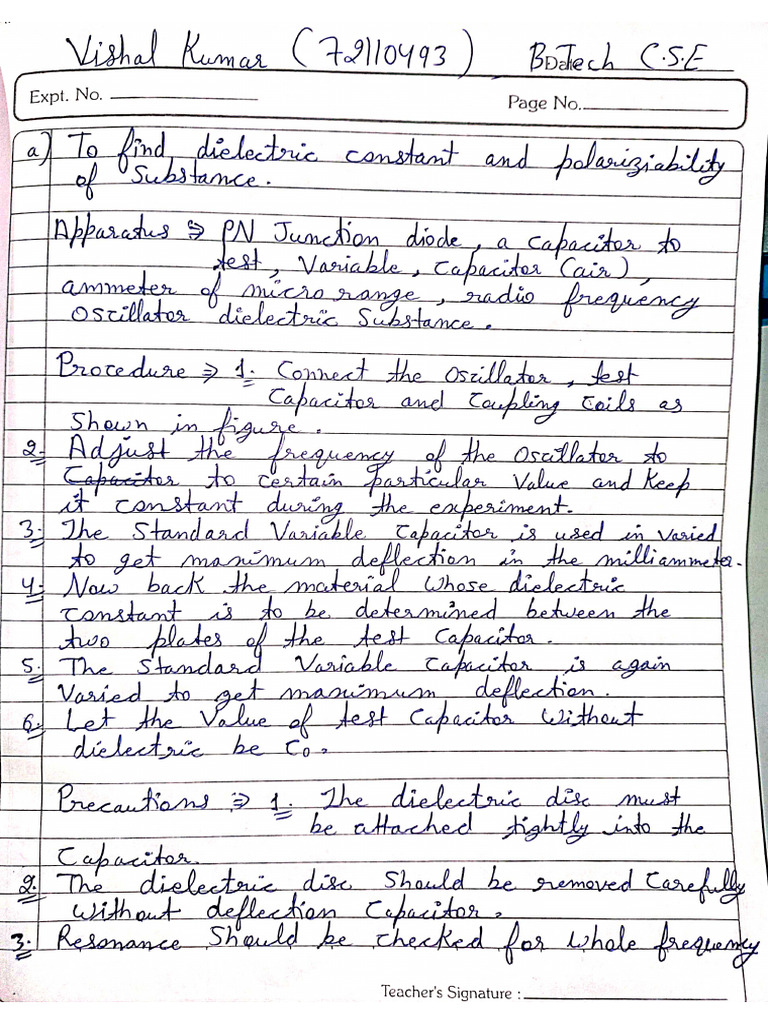 Vishal Kumar (72110493) B.Tech C.S.E
Date
Expt. No.
Page No.
a) To find dielectric constant and polariziability
of Substance.
Apparatus ⇒ PN Junction diode, a capacitor to
test, Variable, Capacitor (air),
ammeter of micro range, radio frequency
Oscillator dielectric Substance.
Procedure ⇒ 1. Connect the Oscillator, test
Capacitor and Coupling Coils as
Shown in figure.
2. Adjust the frequency of the Oscillator to
Capacitor to certain particular Value and Keep
it constant during the experiment.
3. The Standard Variable Capacitor is used in Varied
to get maximum deflection in the milliammeter.
4. Now back the material Whose dielectric
constant is to be determined between the
two plates of the test Capacitor.
5. The Standard Variable Capacitor is again
Varied to get maximum deflection.
6. Let the Value of test Capacitor Without
dielectric be C0.
Precautions ⇒ 1. The dielectric disc must
be attached tightly into the
Capacitor.
2. The dielectric disc Should be removed Carefully
Without deflection Capacitor.
3. Resonance Should be checked for Whole frequency
Teacher's Signature :